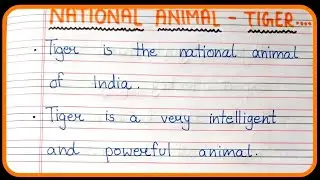 NATIONAL ANIMAL - TIGER....
• Tiger is the national animal
of India.
• Tiger is a very intelligent
and powerful animal.